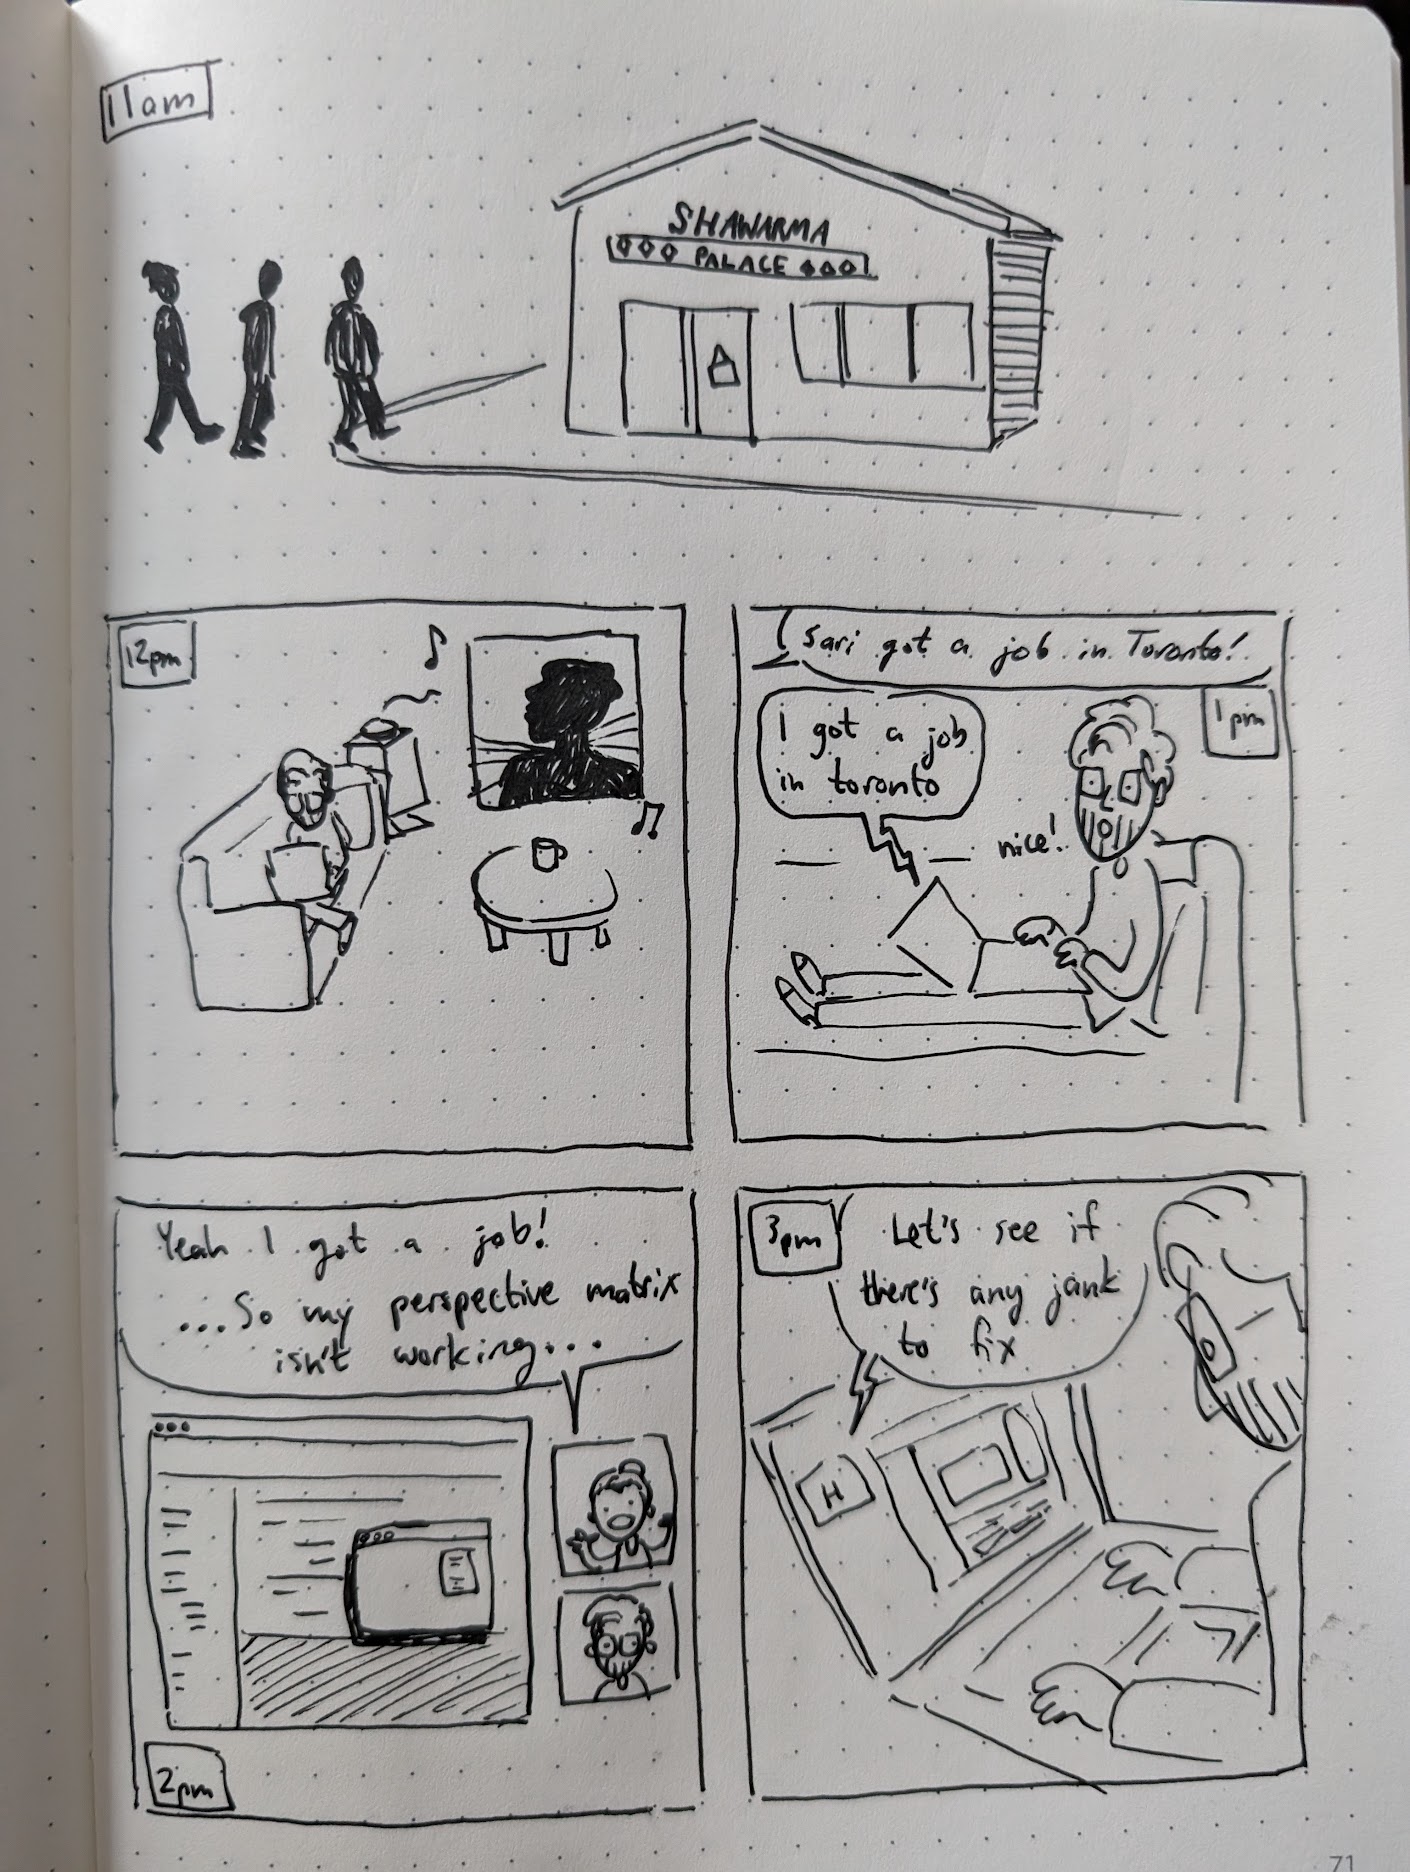 11am
SHAWARMA
PALACE
12pm
Sari got a job in Toronto!
1pm
I got a job
in toronto
nice!
Yeah I got a job!
...So my perspective matrix
isn't working...
2pm
3pm
Let's see if
there's any jank
to fix
H
71